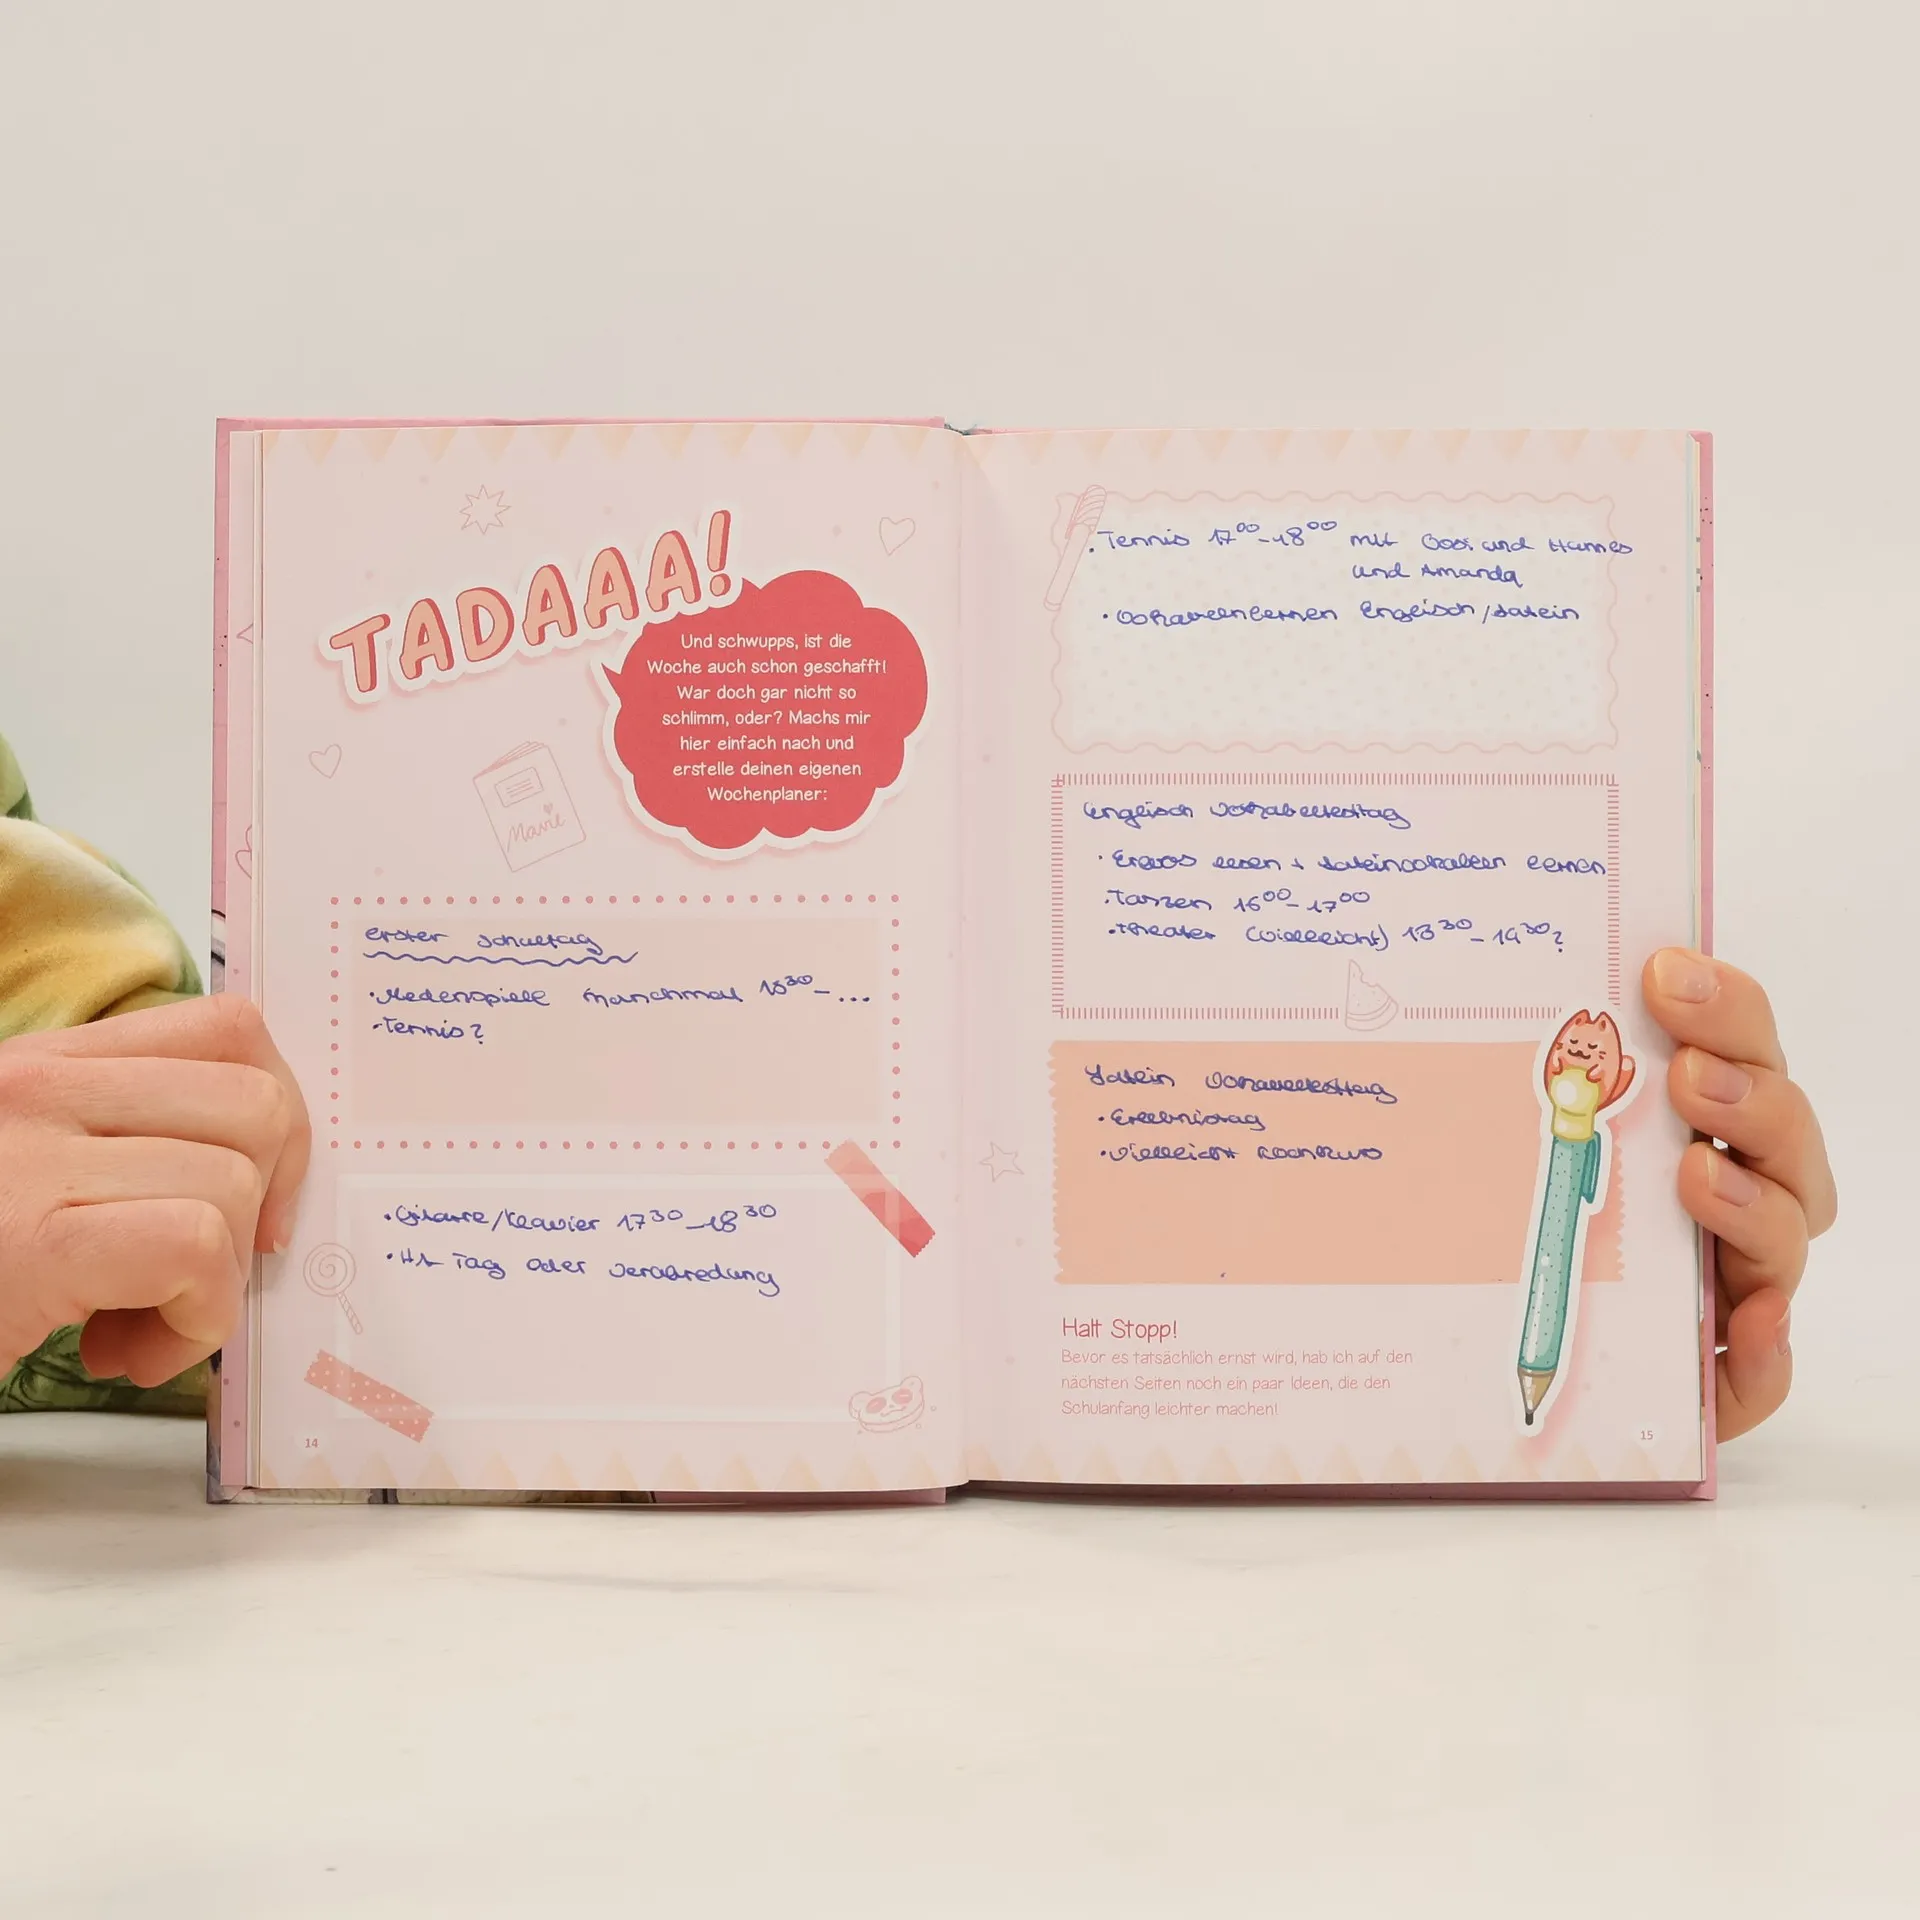 TADAAA!
Und schwupps, ist die
Woche auch schon geschafft!
War doch gar nicht so
schlimm, oder? Machs mir
hier einfach nach und
erstelle deinen eigenen
Wochenplaner:
Mavie
erster Schultag
• Medenspiele manchmal 15³⁰ – ...
• Tennis?
• Gitarre/Klavier 17³⁰ – 18³⁰
• Tag oder Verabredung
14
• Tennis 17⁰⁰ – 18⁰⁰ mit und Hannes
und Amanda
• Vokabeln lernen Englisch/Latein
Englisch Vokabeltesttag
• lesen + Lateinvokabeln lernen
• Tanzen 16⁰⁰ – 17⁰⁰
• Theater (vielleicht) – 19³⁰?
Latein Vokabeltesttag
• Erlebnistag
• vielleicht Kochkurs
Halt Stopp!
Bevor es tatsächlich ernst wird, hab ich auf den
nächsten Seiten noch ein paar Ideen, die den
Schulanfang leichter machen!
15